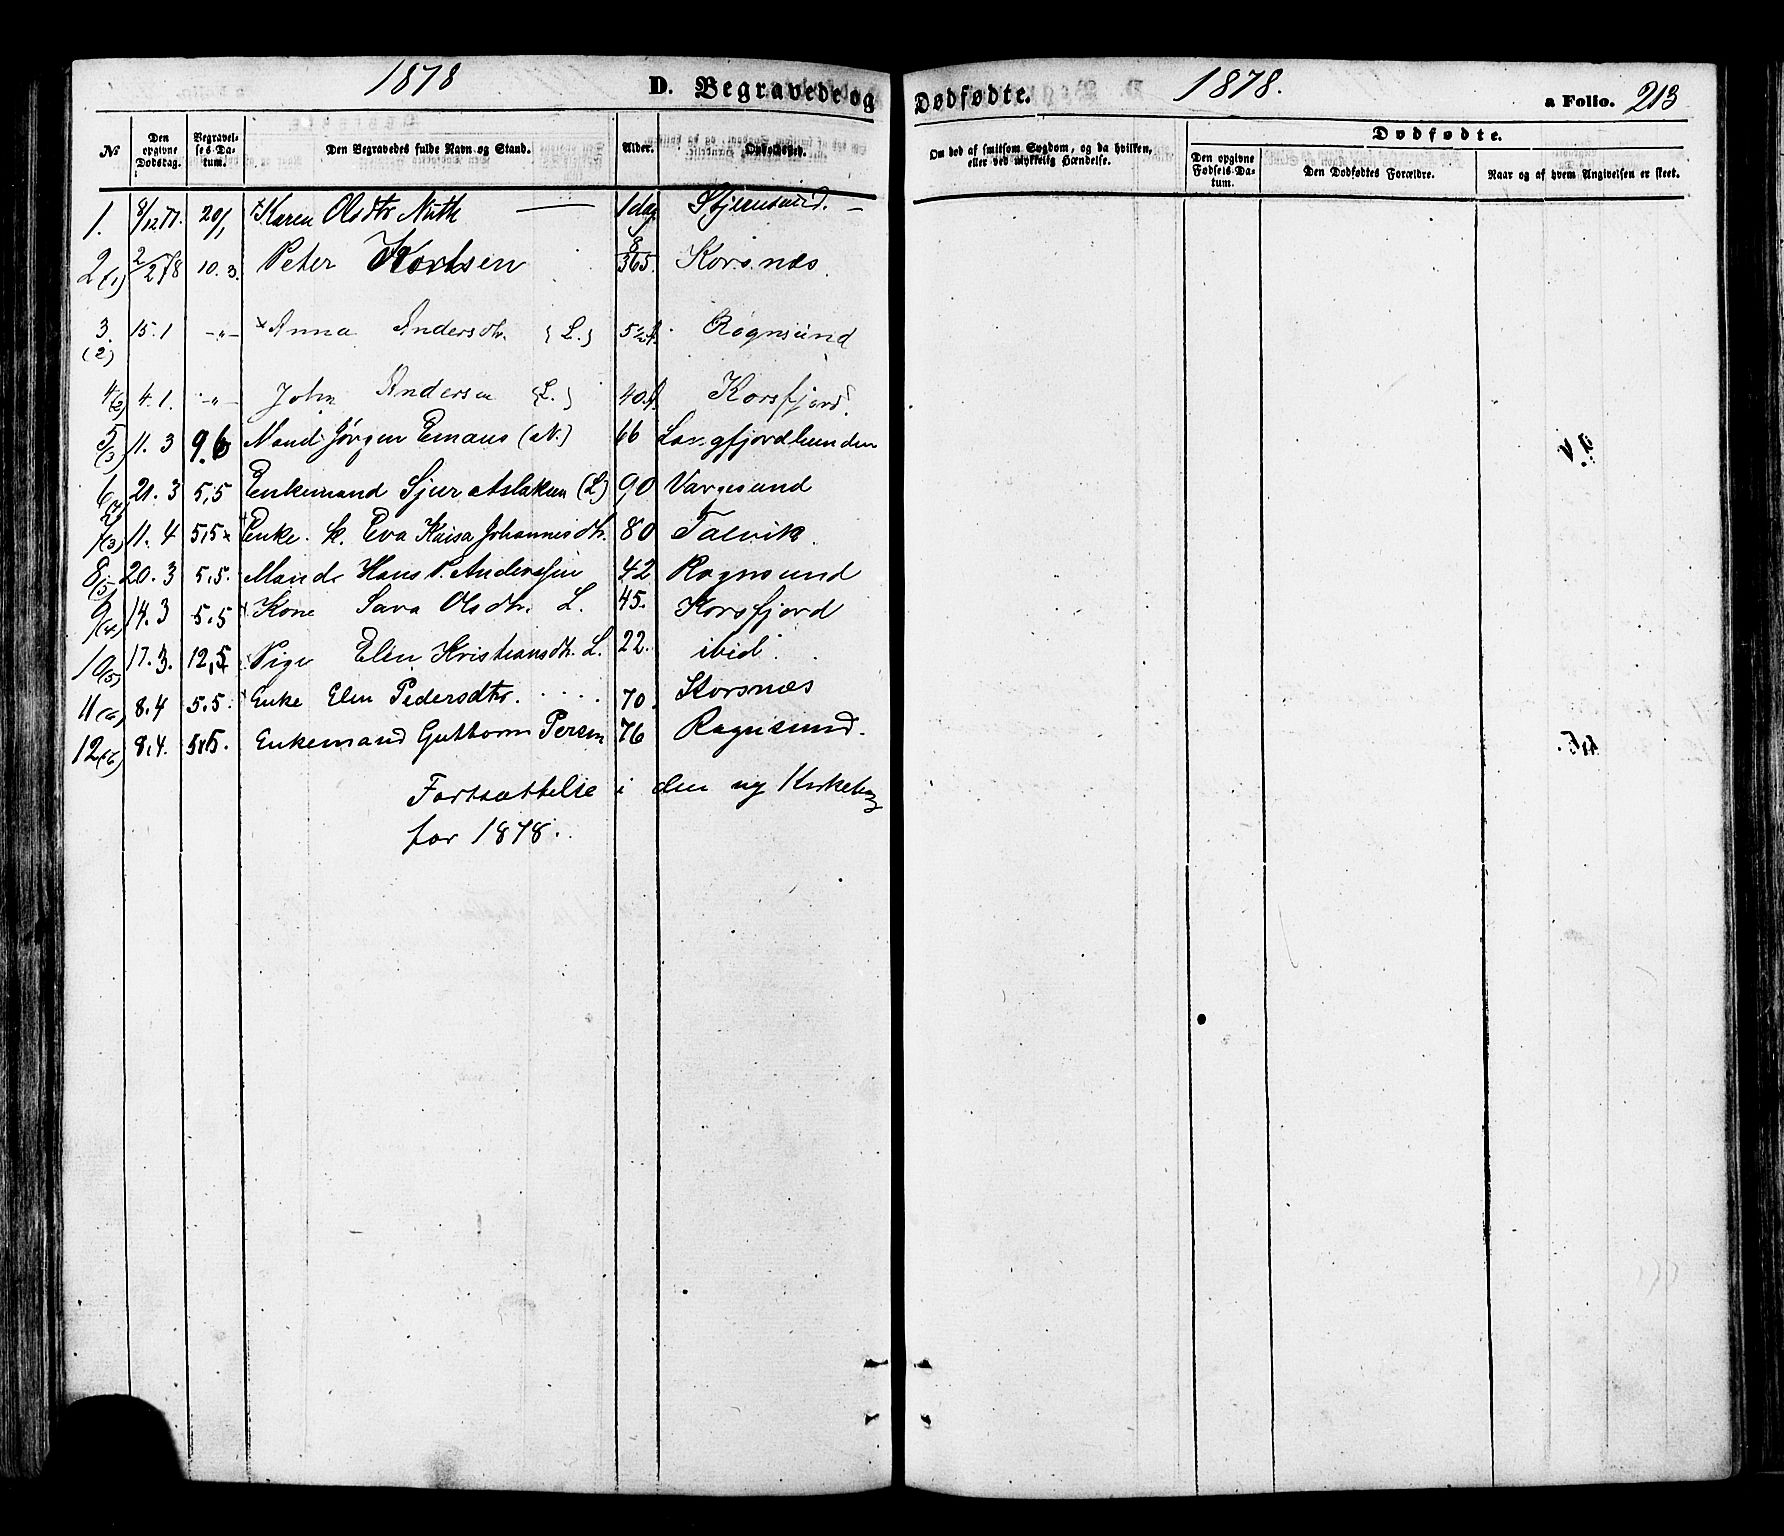 1878
D. Begravede og
№
Den opgivne Dödsdag.
Begravelses-Datum.
Den Begravedes fulde Navn og Stand.
Alder.
Opholdssted.
1. 8/12 77. 20/1 Karen Olsdtr Nuth 1 dag Stjernsund.
2(1) 2/2 78 10.3. Peter Kortsen 8/365. Korsnæs.
3.(2) 15.1 -"- Anna Andersdtr. (L.) 5 Rognsund
4(2) 4.1. -"- John Andersen (L.) 40 Korsfjord.
5(3) 11.3 9.6 Mand Jørgen Emaus (N.) 66 Langfjordbunden
6 21.3 5,5 Enkemand Sjur Aslaksen (L) 90 Vargsund
7(3) 11.4 5,5 Enke k. Eva Kaisa Johannesdtr. 80 Talvik.
8(5) 20.3 5,5. Mand Hans P. Anderssen 42 Rognsund
9(4) 14.3 5,5 Kone Sara Olsdtr. L. 45. Korsfjord
10(5) 17.3. 12,5 Pige Elen Kristiansdtr. L. 22. ibid.
11(6) 8.4 5.5. Enke Elen Pedersdtr. 70. Korsnæs
12(6) 8.4. 5.5. Enkemand Guttorm Persen 76 Rognsund.
Fortsættelse i den ny Kirkebog
for 1878.
Dödfödte.
1878.
a Folio. 213
Om död af smitsom Sygdom, og da hvilken, eller ved ulykkelig Hændelse.
Dödfödte.
Den opgivne Födsels-Datum.
Den Dödfödtes Forældre.
Naar og af hvem Angivelsen er skeet.